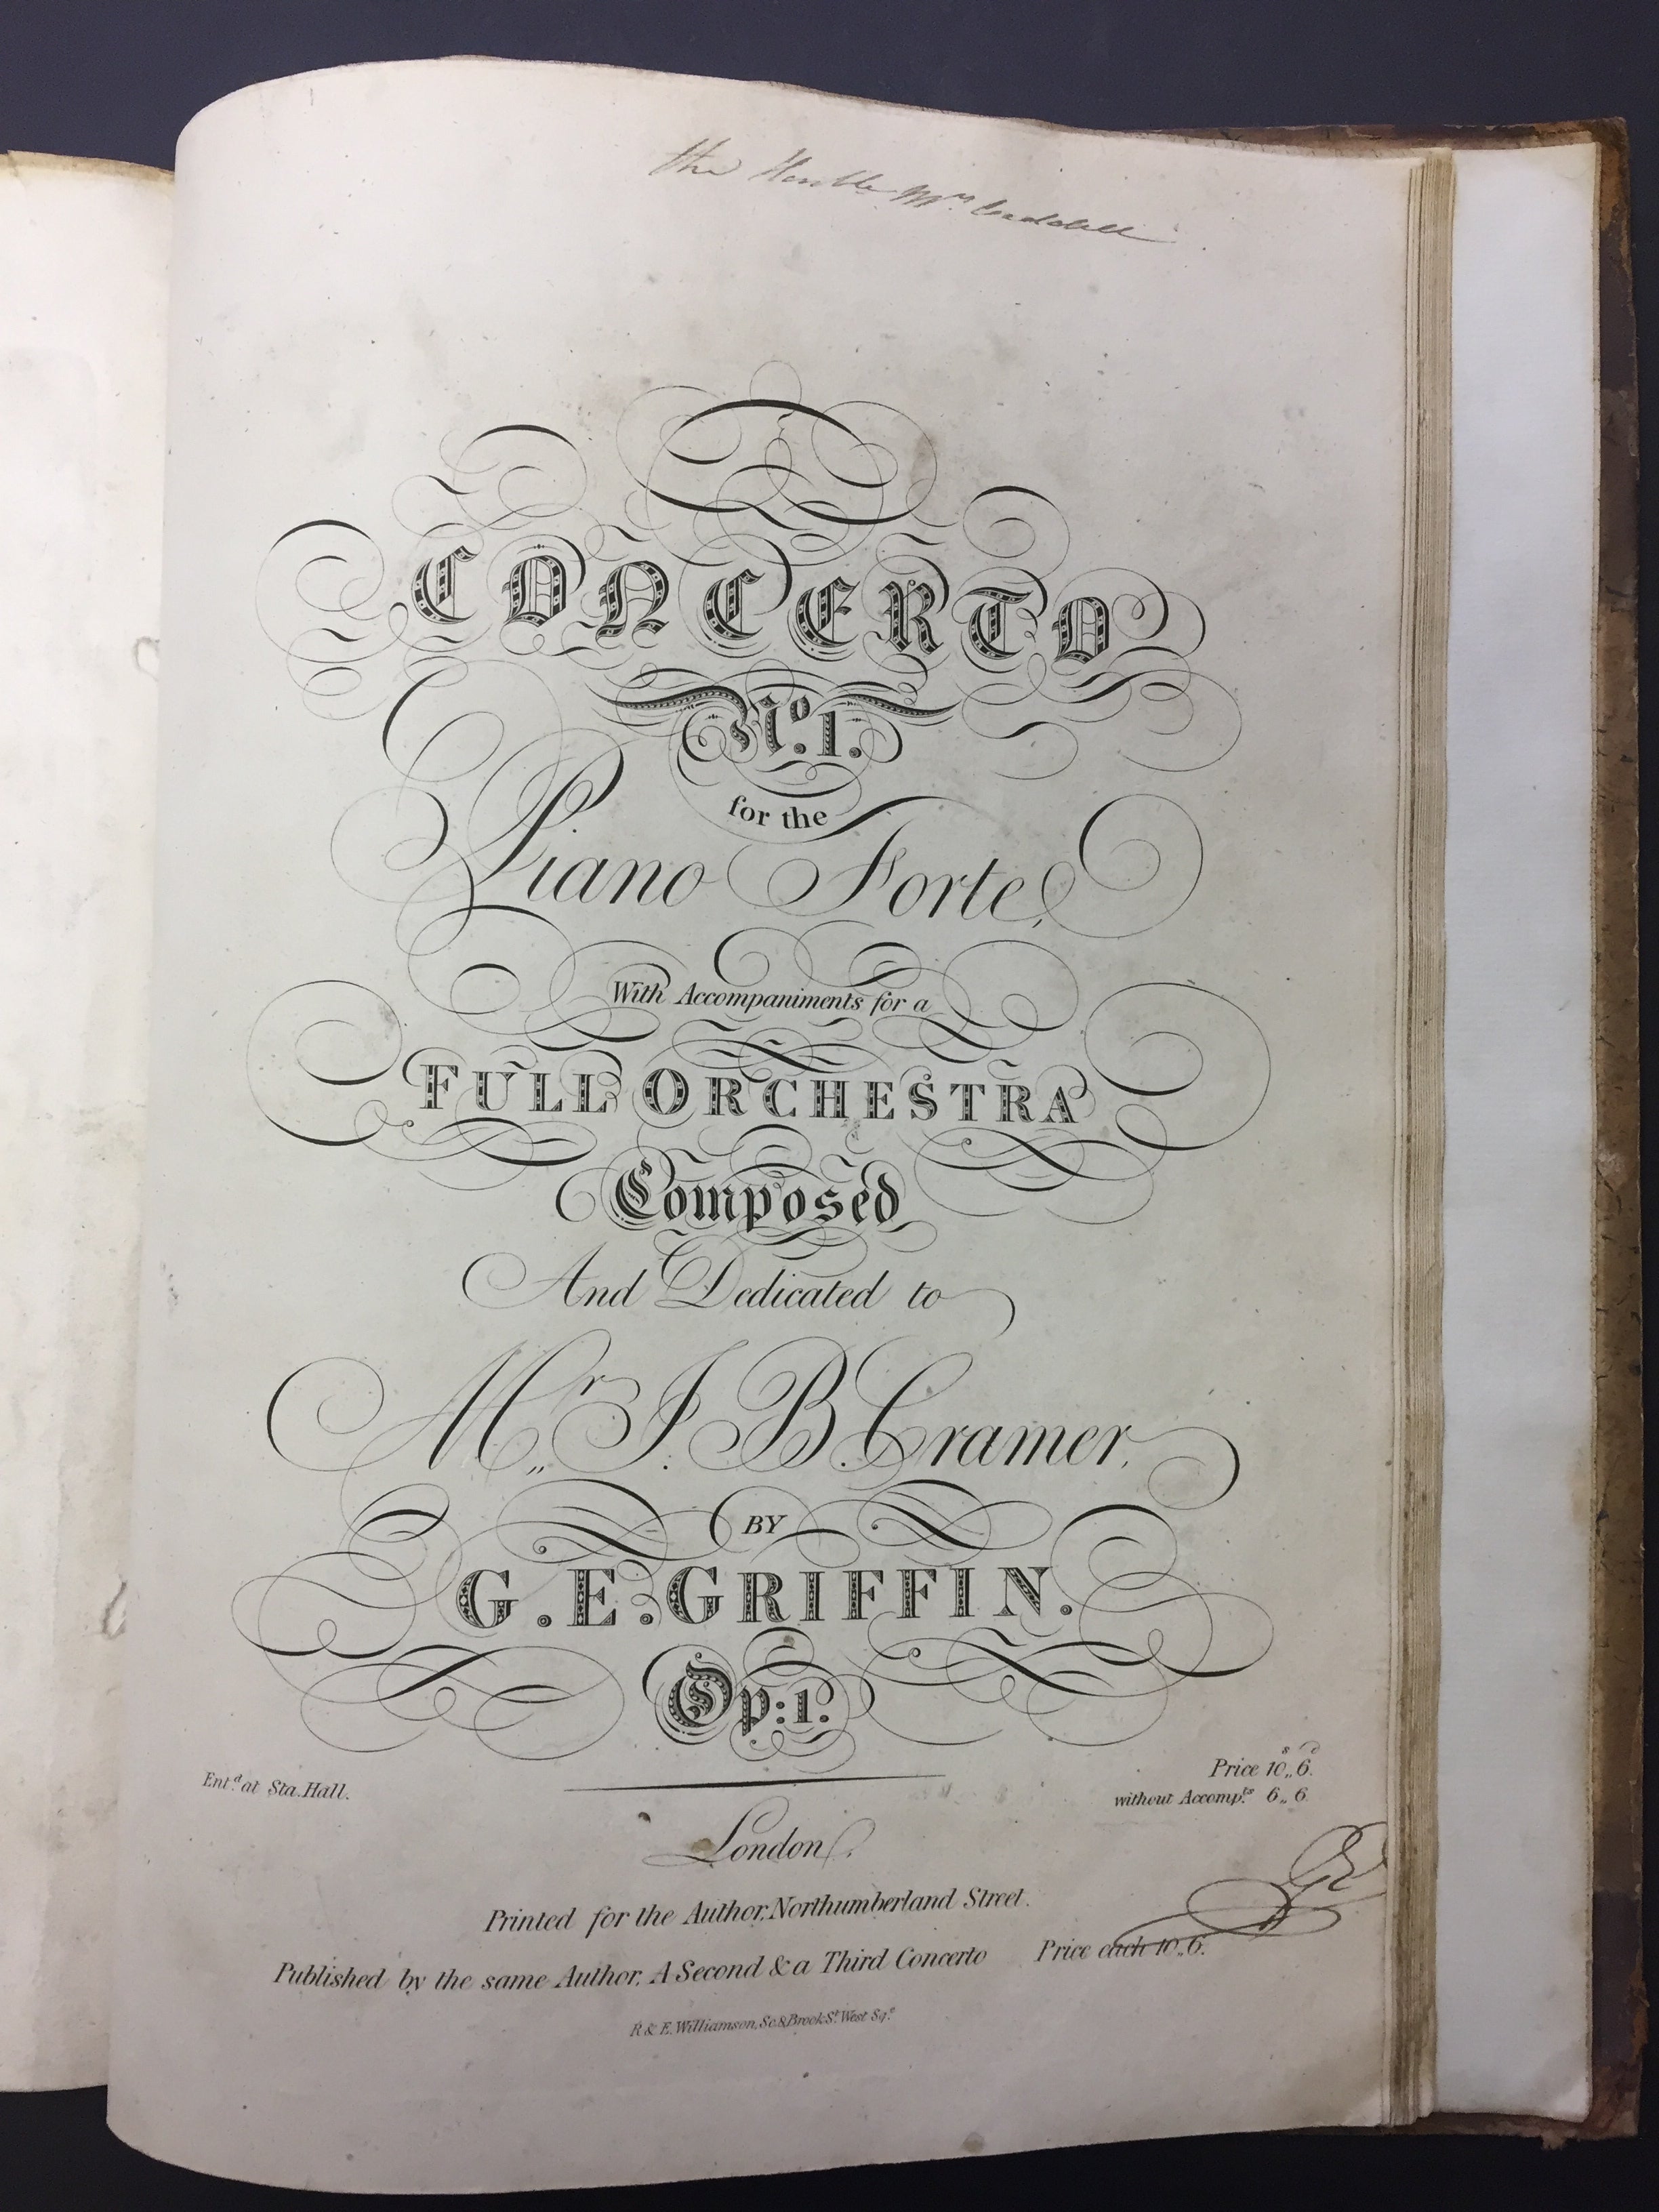 the Honble Mrs
CONCERTO
No. 1.
for the
Piano Forte,
With Accompaniments for a
FULL ORCHESTRA
Composed
And Dedicated to
Mr,, J. B. Cramer,
BY
G. E. GRIFFIN.
Op: 1.
Entd. at Sta. Hall.
Price 10s,,6d.
without Accompts. 6,,6.
London.
Printed for the Author, Northumberland Street.
Published by the same Author, A Second & a Third Concerto Price each 10,,6.
R & E. Williamson, Sc. Brook St. West Sqe.